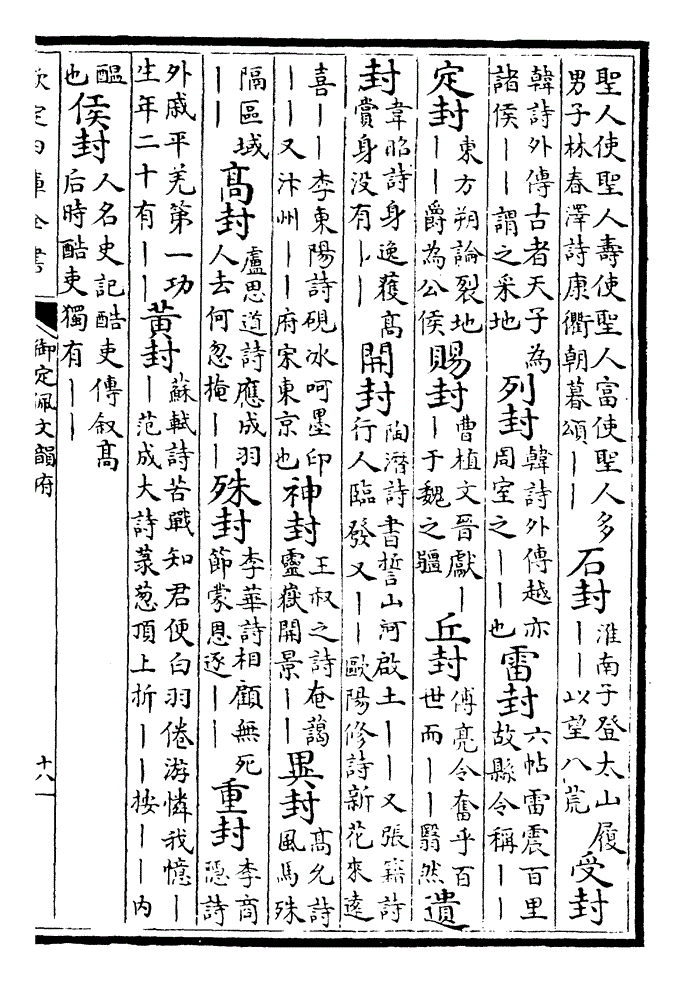 聖人使聖人壽使聖人富使聖人多男子林春澤詩康衢朝暮頌丨丨 石封 淮南子登太山履丨丨以望八荒 受封
韓詩外傳古者天子為諸侯丨丨謂之采地 列封 韓詩外傳越亦周室之丨丨也 雷封 六帖雷震百里故縣令稱丨丨
定封 東方朔論裂地丨丨爵為公侯 賜封 曹植文晉獻丨丨于魏之疆 丘封 傅亮令奮乎百世而丨丨翳然 遺
封 韋昭詩身逸獲高賞身没有丨丨 開封 陶潛詩書誓山河啟土丨丨又張籍詩行人臨發又丨丨歐陽修詩新花來逺
喜丨丨李東陽詩硯冰呵墨印丨丨又汴州丨丨府宋東京也 神封 王叔之詩奄藹靈嶽開景丨丨 異封 高允詩風馬殊
隔區域丨丨 高封 盧思道詩應成羽人去何忽掩丨丨 殊封 李華詩相顧無死節蒙恩逐丨丨 重封 李商隱詩
外戚平羌第一功生年二十有丨丨 黄封 蘇軾詩苦戰知君便白羽倦游憐我憶丨丨范成大詩蒙葱頂上折丨丨按丨丨内
醖也 侯封 人名史記酷吏傳叙高后時酷吏獨有丨丨
欽定四庫全書
御定佩文韻府
十八